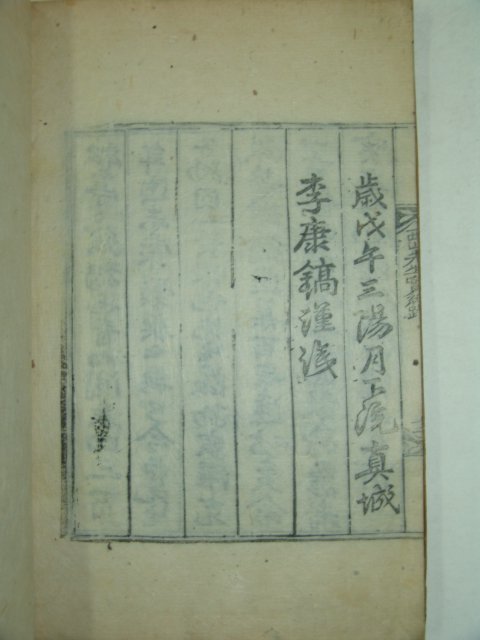 歳戊午三陽月下浣真城
李康鎬謹識